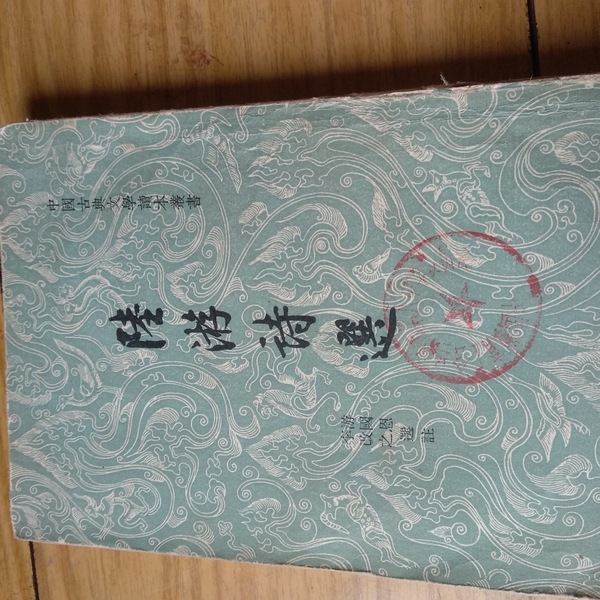 中國古典文學讀本叢書
陸游诗選
游國恩
李改之 選註